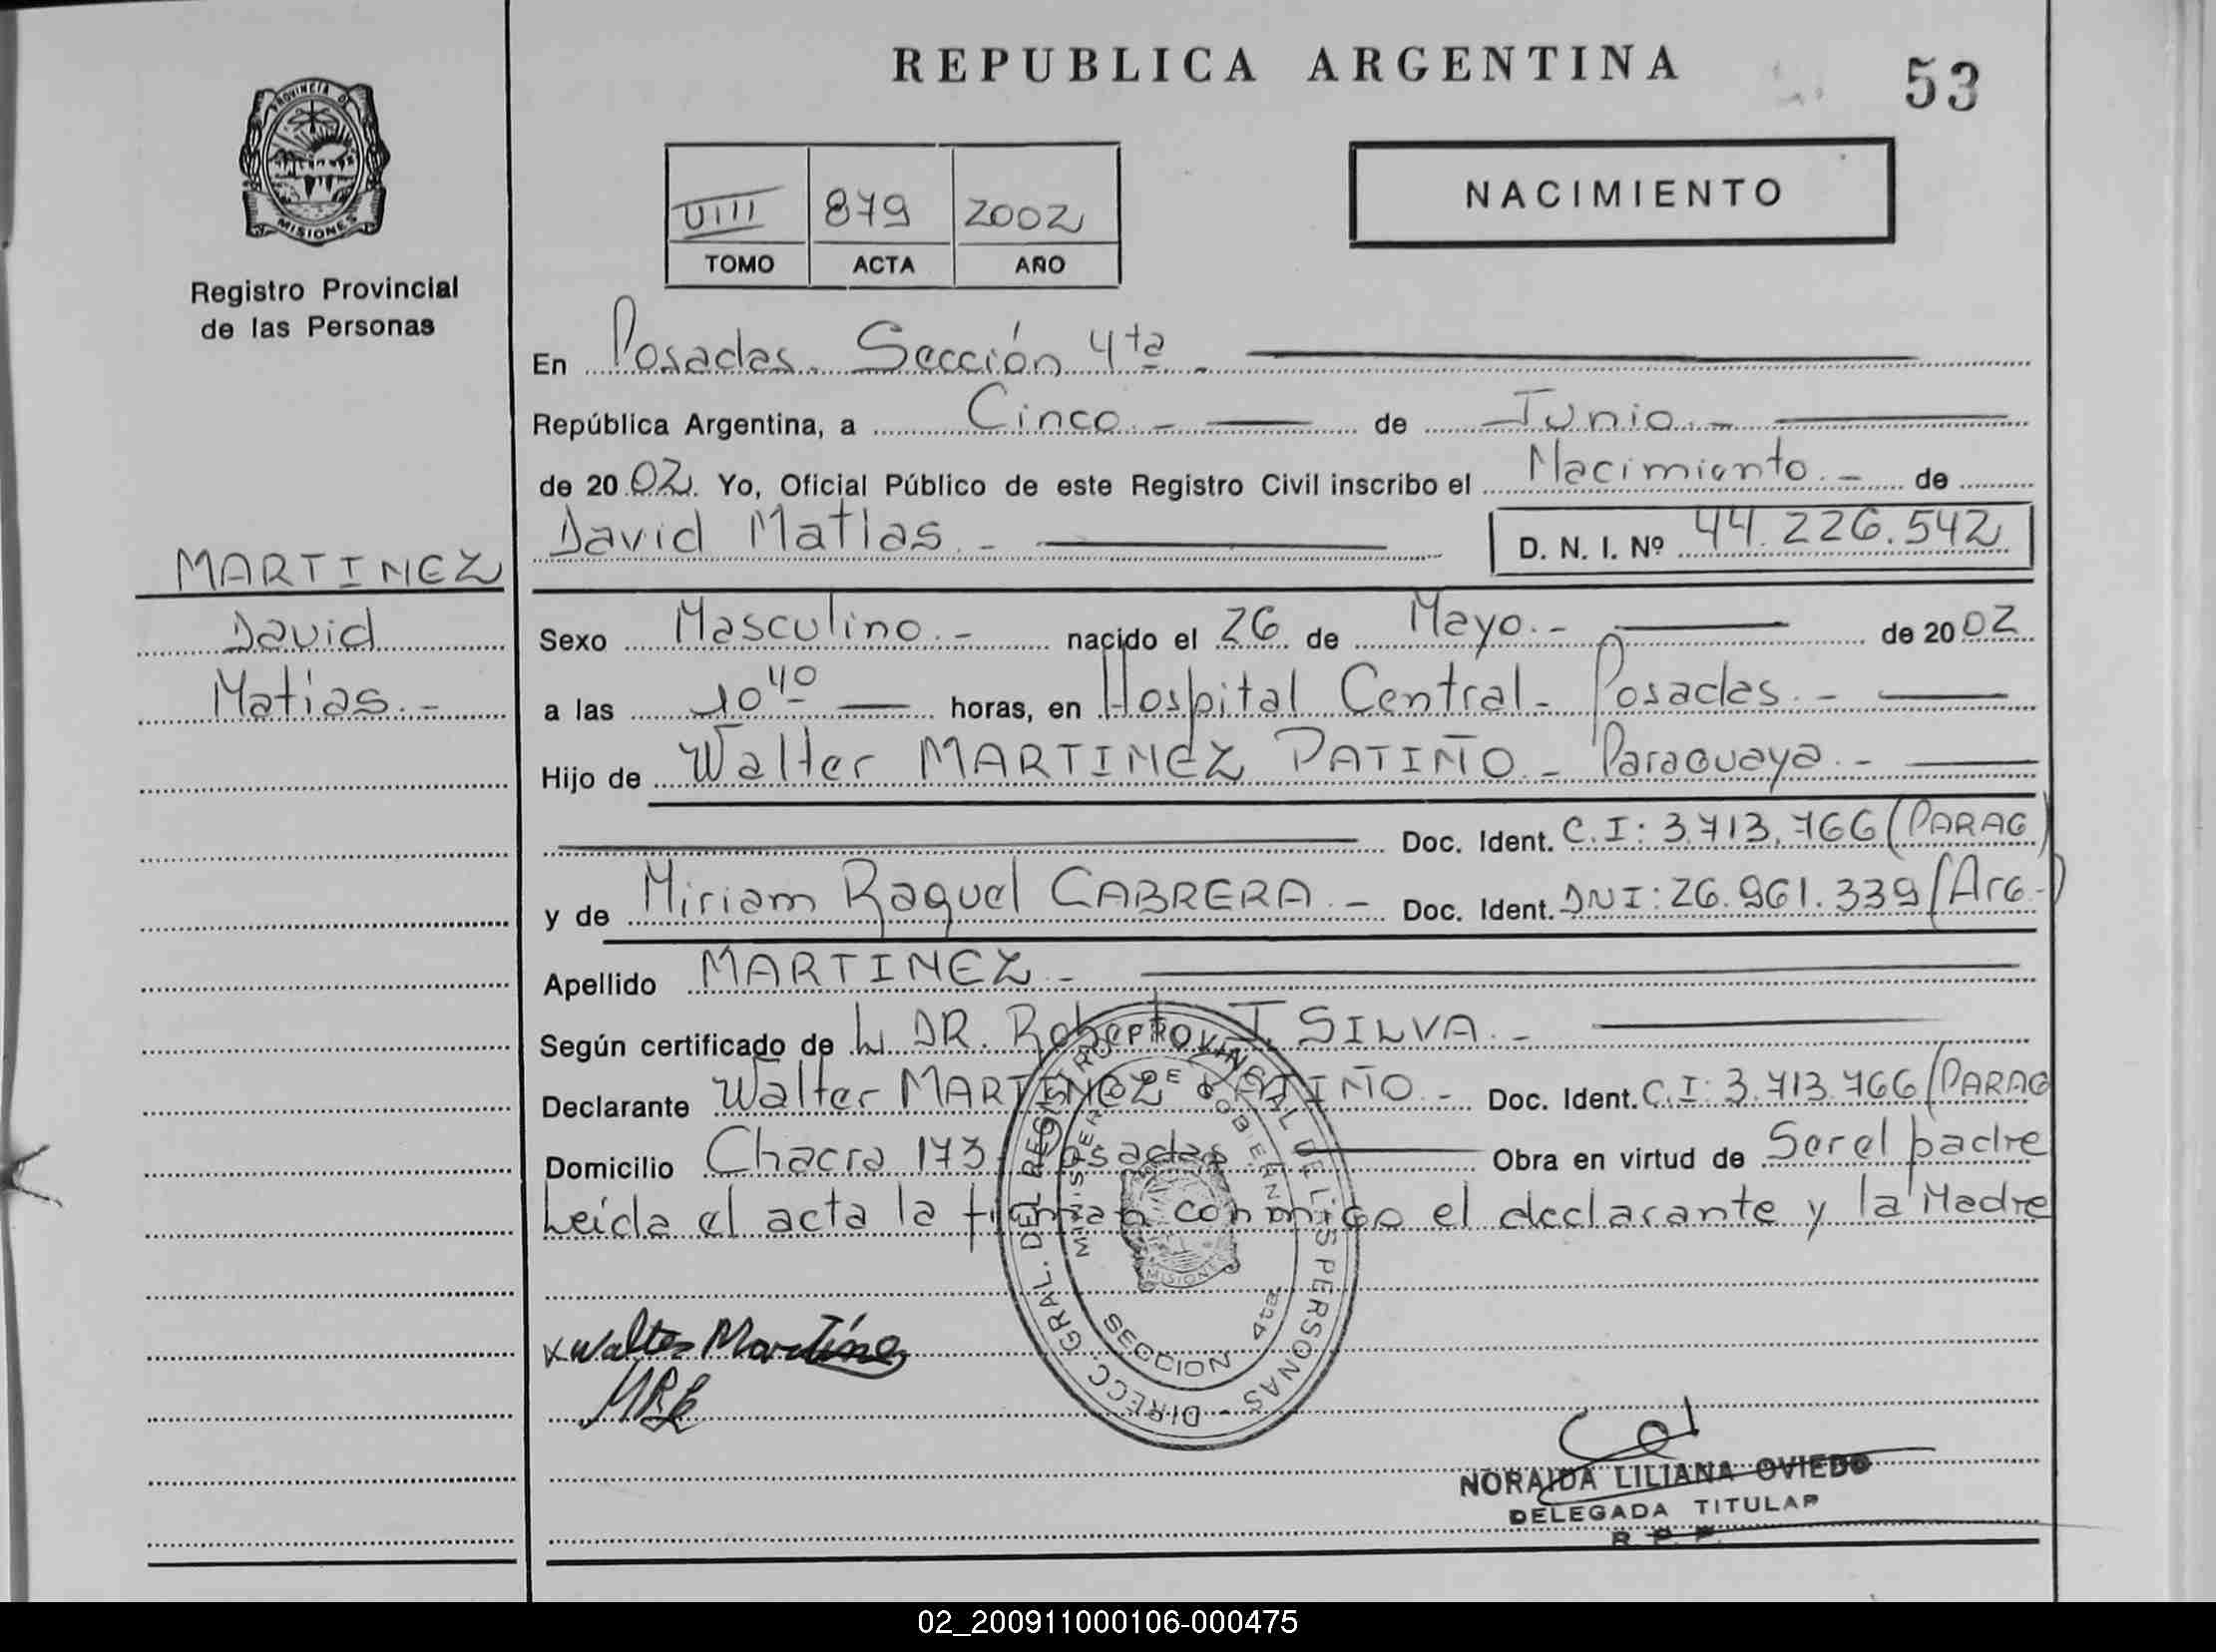 REPUBLICA ARGENTINA
53
PROVINCIA DE
MISIONES
Registro Provincial
de las Personas
VIII 879 2002
TOMO ACTA AÑO
NACIMIENTO
En Posadas. Sección 4ta.
República Argentina, a Cinco.- de Junio.-
de 2002. Yo, Oficial Público de este Registro Civil inscribo el Nacimiento.- de
David Matias.- D. N. I. Nº 44.226.542
MARTINEZ
David
Matias.-
Sexo Masculino.- nacido el 26 de Mayo.- de 2002
a las 10 40 horas, en Hospital Central- Posadas.-
Hijo de Walter MARTINEZ PATIÑO - Paraguaya.-
Doc. Ident. C.I: 3.713.766 (PARAG)
y de Miriam Raquel CABRERA.- Doc. Ident. DNI: 26.961.339 (Arg.-)
Apellido MARTINEZ -
Según certificado de DR. Roberto J. SILVA.-
Declarante Walter MARTINEZ PATIÑO.- Doc. Ident. C.I: 3.713.766 (PARAG
Domicilio Chacra 173- Posadas Obra en virtud de Ser el padre
Leida el acta la firman conmigo el declarante y la Madre
DIRECC. GRAL. DEL REGISTRO PROVINCIAL DE LAS PERSONAS -
MINISTERIO DE GOBIERNO
MISIONES
SECCION 4ta
Walter Martinez
NORAIDA LILIANA OVIEDO
DELEGADA TITULAR
R. P. P.
02_200911000106-000475